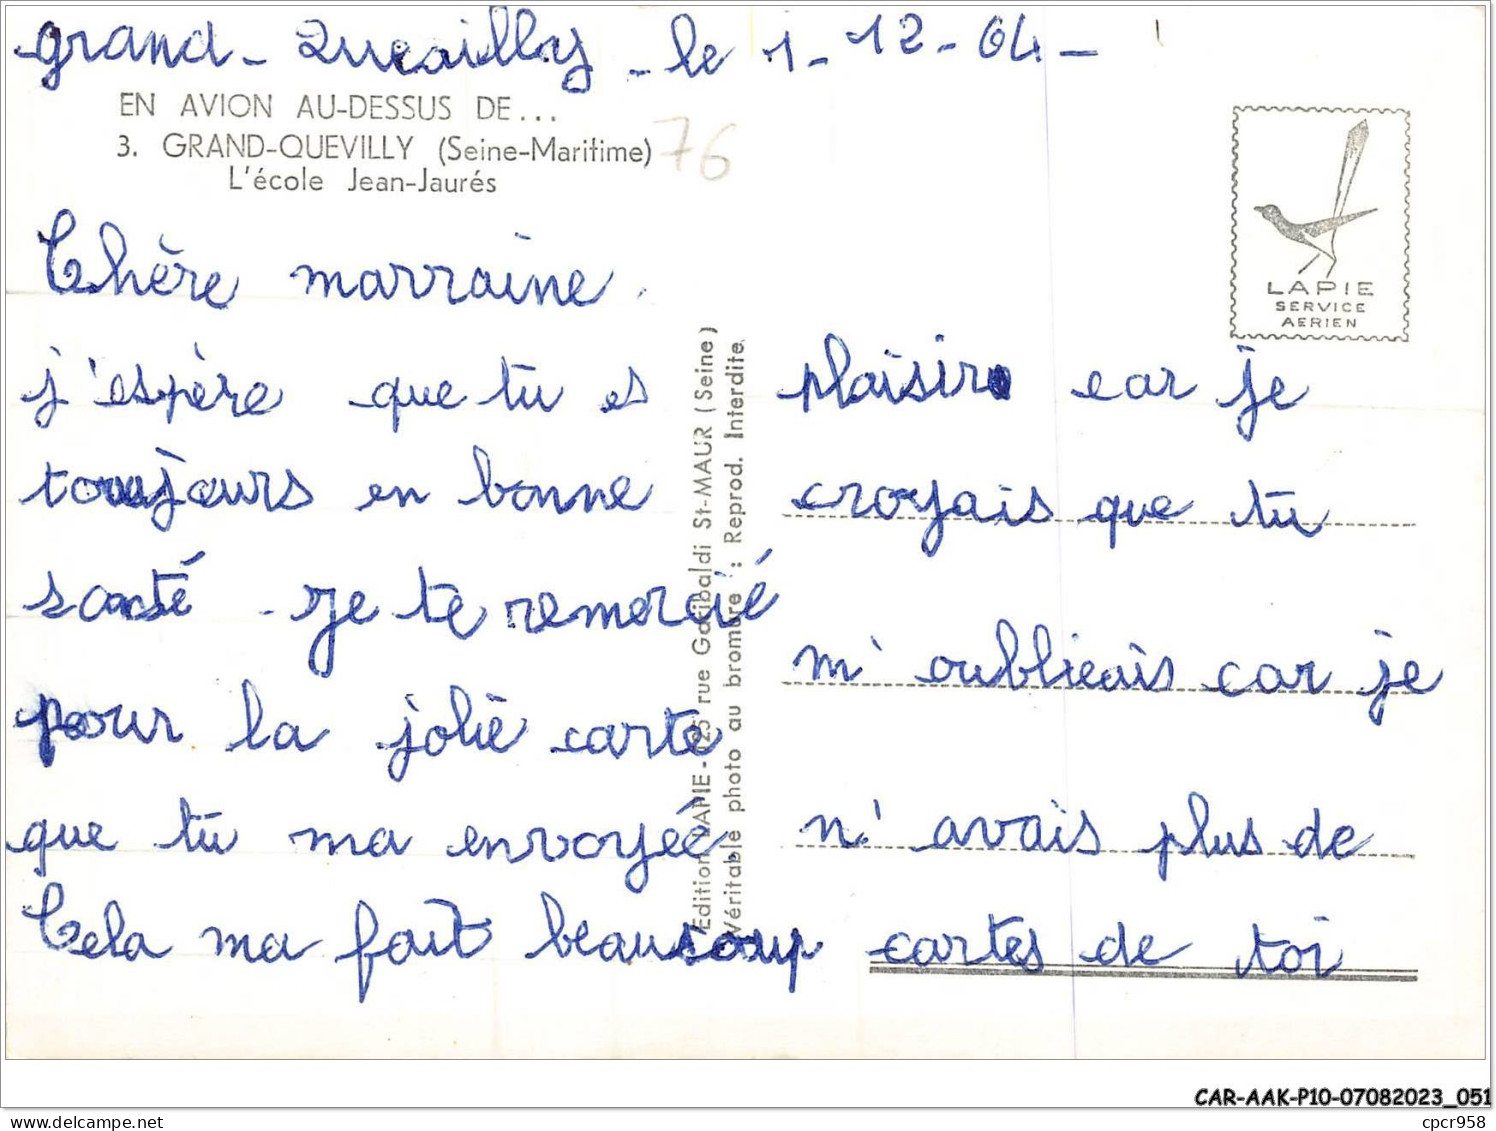 grand - Quevilly - le 1 - 12 - 64 -
EN AVION AU-DESSUS DE...
3. GRAND-QUEVILLY (Seine-Maritime)
L'école Jean-Jaurés
76
LAPIE
SERVICE
AERIEN
Chère marraine
j'espère que tu es
toujours en bonne
santé - je te remercié
pour la jolie carte
que tu ma envoyée
Cela ma fait beaucoup
plaisir car je
croyais que tu
m'oublieais car je
n'avais plus de
cartes de toi
Edition LAPIE - rue Garibaldi St-MAUR (Seine)
Véritable photo au bromure : Reprod. Interdite
CAR-AAK-P10-07082023_051
cpcr958